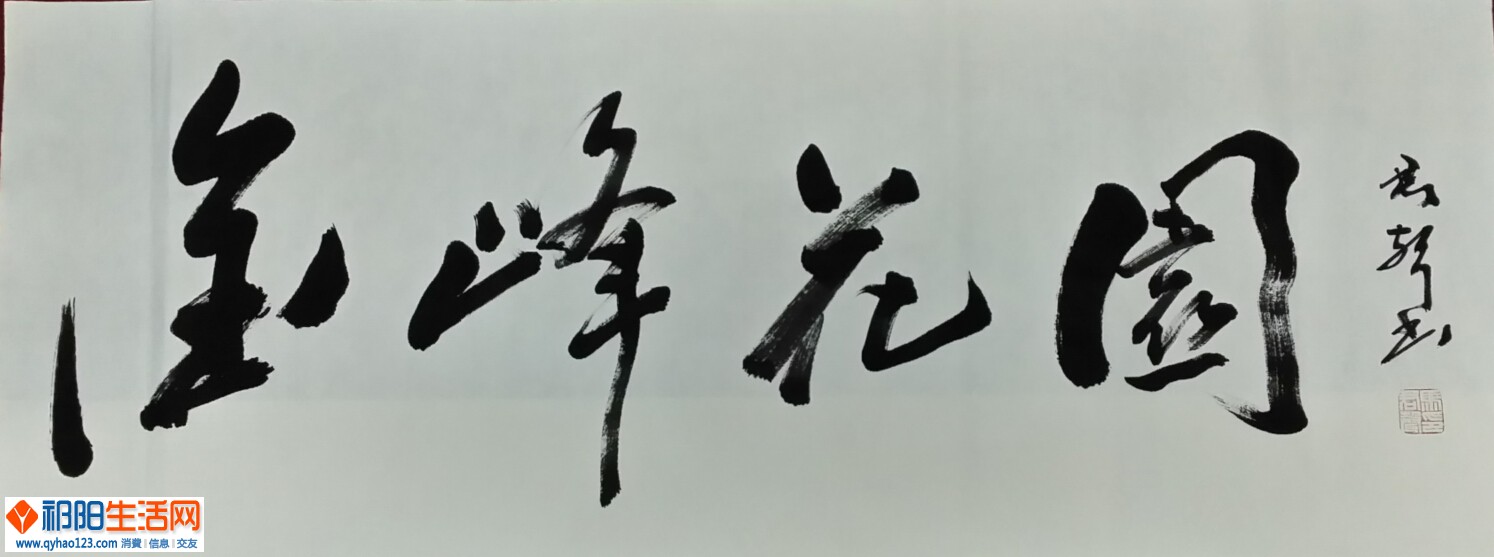 金峰花園
祁阳生活网
www.qyhao123.com 消費 | 信息 | 交友